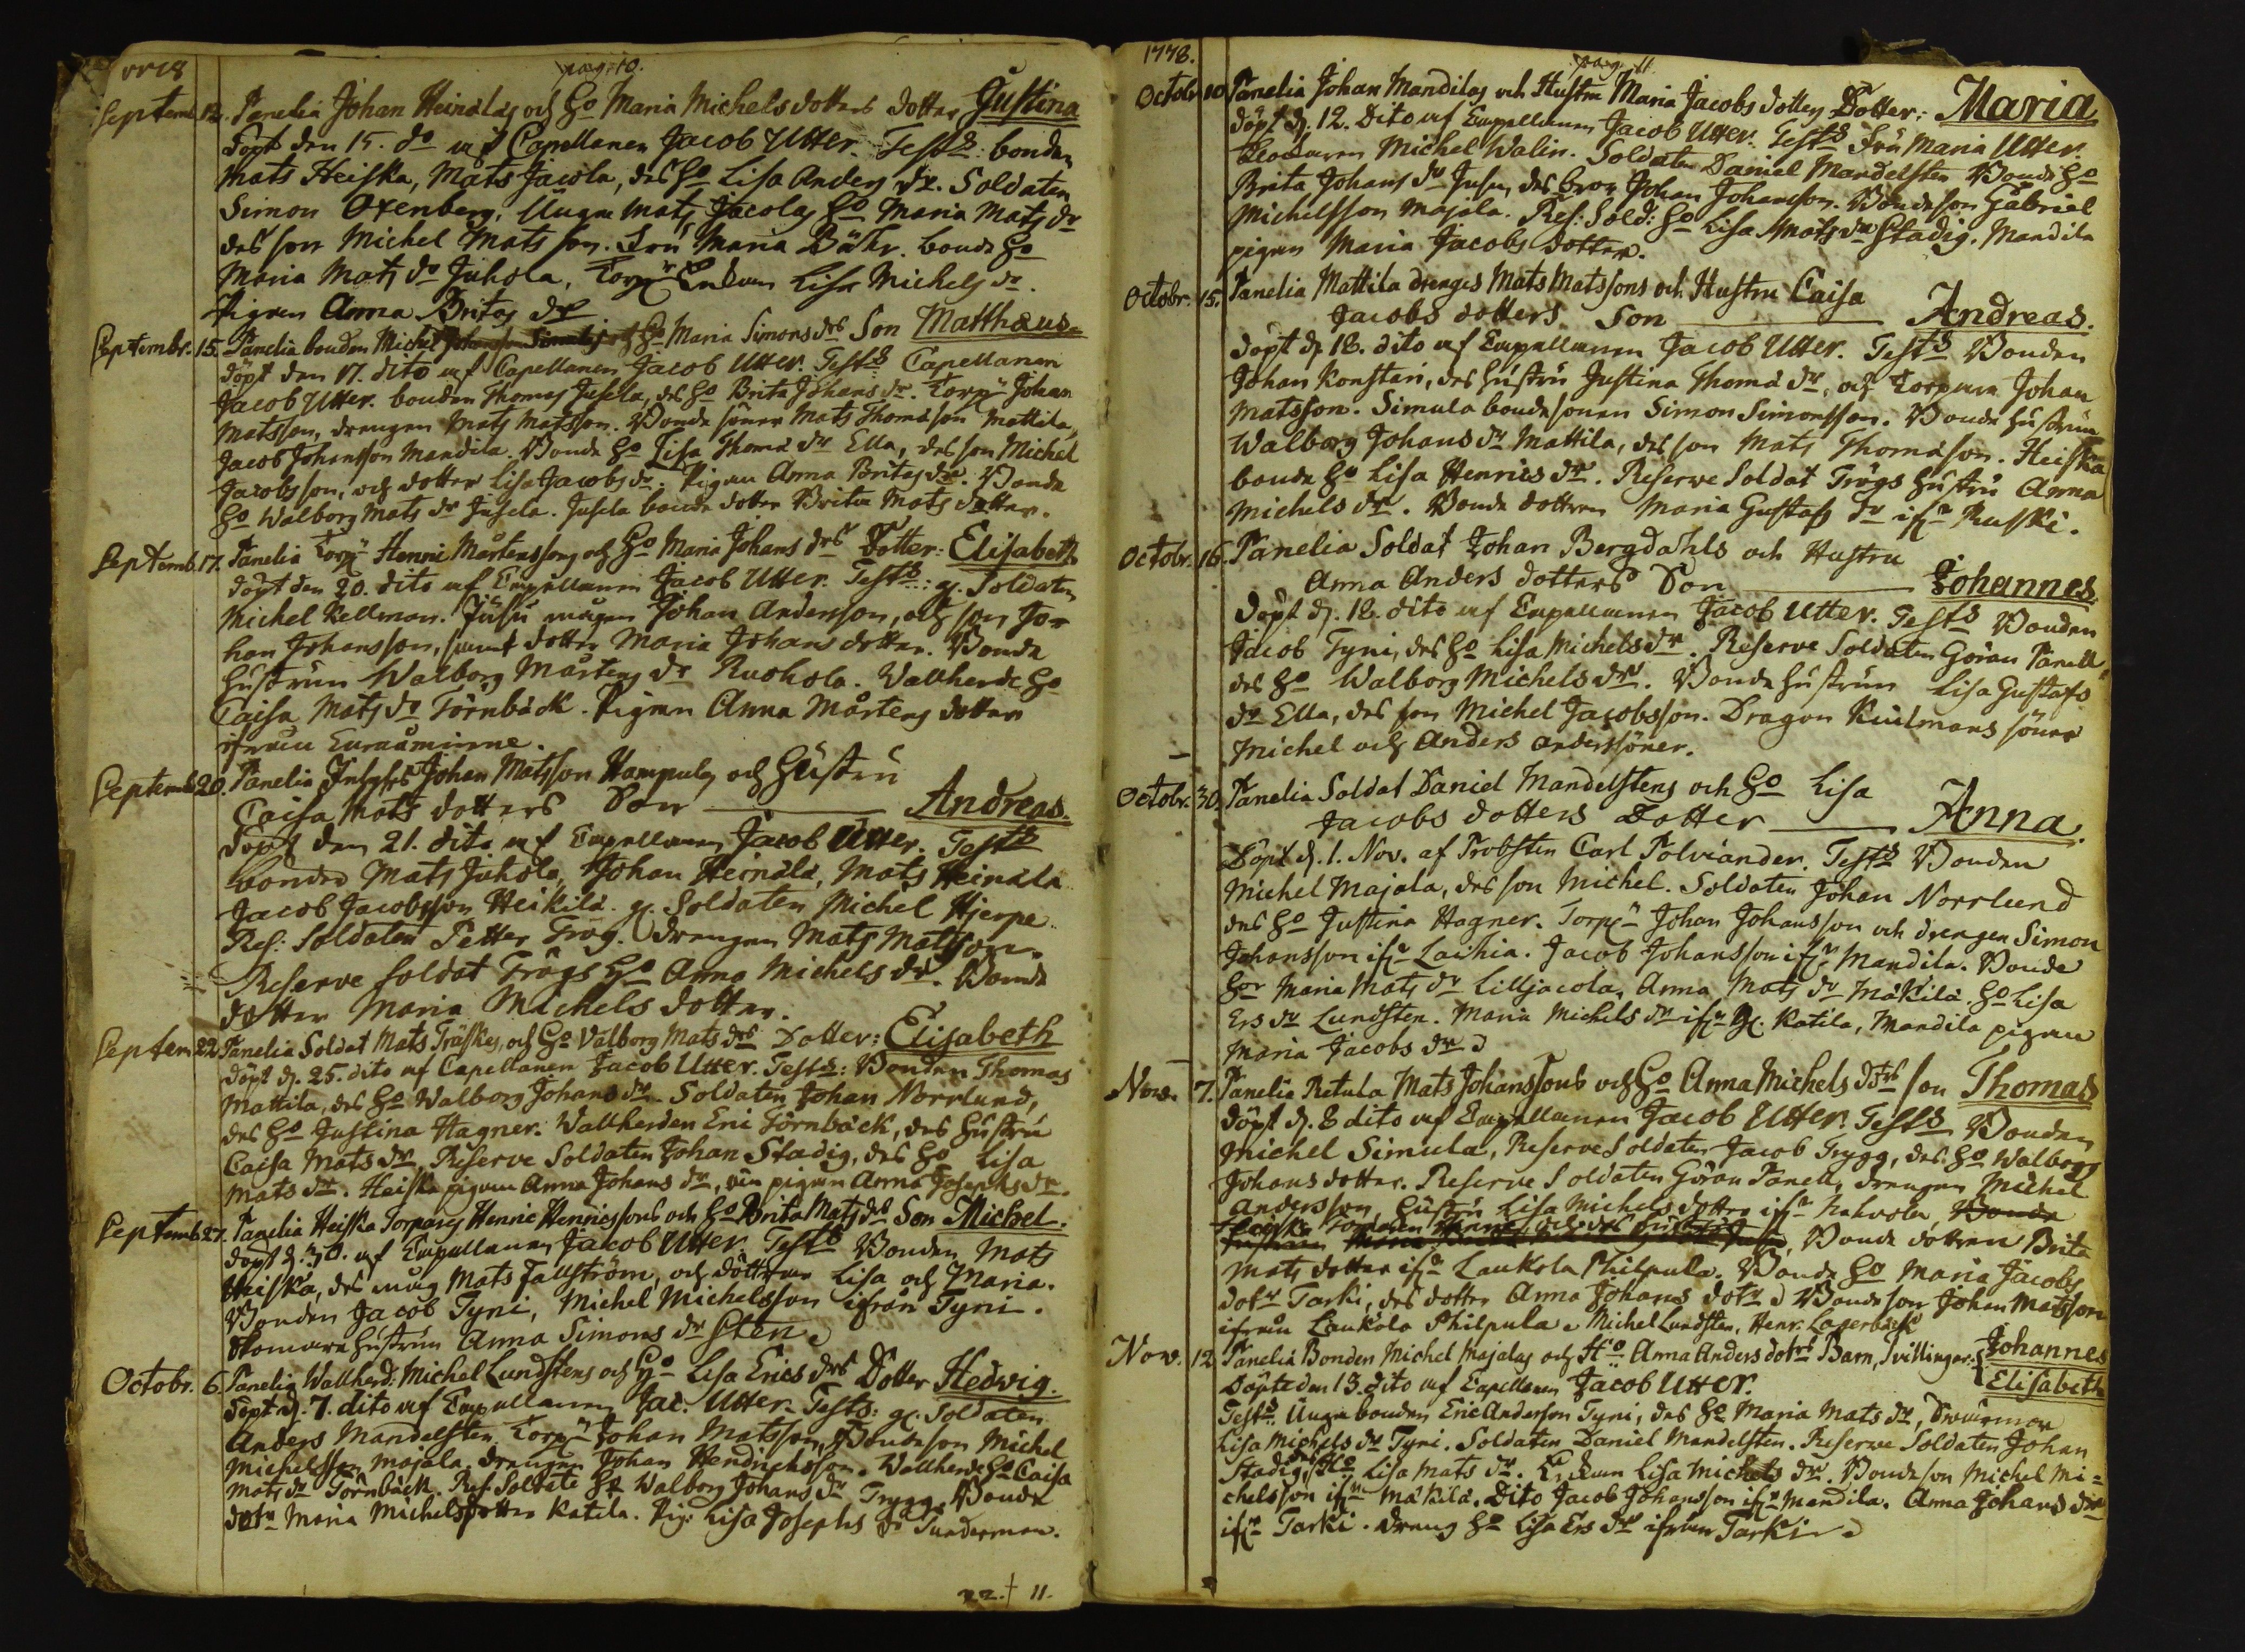 pag. 10.
Septemb. 12. Panelia Johan Heinälas och Ho Maria Michelsdotters dotter Justina
Döpt den 15. do af Capellanen Jacob Utter. Tests: bonden
Mats Heiska, Mats Jacola, des Ho Lisa Anders dr. Soldaten
Simon Oxenberg, Unga Mats Jacolas Ho Maria Mats dr
des son Michel Mats son. Fru Maria Bähr. bonde Ho
Maria Mats dr Juhola, Enkan Lisa Michels dr.
Pigan Anna Britas dr
Septembr. 15. Panelia bonden Michel Ho Maria Simons drs Son Matthæus
döpt den 17. dito af Capellanen Jacob Utter. Tests Capellanen
Jacob Utter. bonden Thomas Jusela, des Ho Brita Johans dr. Torp. Johan
Matsson, drengen Mats Matsson. Bonde söner Mats Thomasson Mattila,
Jacob Johansson Mandila. Bonde Ho Lisa Thoma dr Ella, des son Michel
Jacobsson, och dotter Lisa Jacobs dr. Pigan Anna Britas dr. Bonde
Ho Walborg Mats dr Jusela. Jusela bonde dotter Brita Mats dotter.
Septemb. 17. Panelia Torp. Henric Mårtenssons och Ho Maria Johans drs Dotter: Elisabeth
döpt den 20. dito af Capellanen Jacob Utter. Tests: g. Soldaten
Michel Kellman. Jusu mågen Johan Andersson, och son Jo-
han Johansson, samt dotter Maria Johans dotter. Bonde
hustrun Walborg Mårtens dr Ruohola. Wallherde Ho
Caisa Mats dr Törnbäck. Pigan Anna Mårtens dotter
ifrån Euraåminne.
Septemb. 20. Panelia Johan Matsson Hampulas och Hustru
Caisa Mats dotters Son Andreas.
Döpt den 21. dito af Capellanen Jacob Utter. Tests
bonden Mats Juhola, Johan Heinälä, Mats Heinälä
Jacob Jacobsson Heikilä. g. Soldaten Michel Hjerpe
Res: Soldaten Petter Trög. Drengen Mats Matsson.
Reserve soldat Trögs Ho Anna Michels dr. Bonde
dotter Maria Michels dotter.
Septem. 22. Panelia Soldat Mats Träskes, och Ho Valborg Mats drs Dotter: Elisabeth
döpt d. 25. dito af Capellanen Jacob Utter. Tests: Bonden Thomas
Mattila, des Ho Walborg Johans dr. Soldaten Johan Norrlund,
des Ho Justina Hagner. Wallherden Eric Törnbäck, des Hustru
Caisa Mats dr. Reserve Soldaten Johan Stadig, des Ho Lisa
Mats dr. Heiska pigan Anna Johans dr, pigan Anna Josephs dr.
Septemb. 27. Panelia Heiska Torpares Henric Henricssons och Ho Brita Mats drs Son Michel.
döpt d. 30. af Capellanen Jacob Utter. Tests Bonden Mats
Heiska, des måg Mats Fallström, och döttrar Lisa och Maria.
Bonden Jacob Tyni, Michel Michelsson ifrån Tyni.
Hustrun Anna Simons dr Sten.
Octobr. 6. Panelia Wallherd: Michel Lundstens och Ho Lisa Erics drs Dotter Hedvig.
döpt d. 7. dito af Capellanen Jac. Utter. Tests: g. Soldaten
Anders Mandelsten, Torp. Johan Matsson, Bondeson Michel
Michelsson Majala. drengen Johan Hendrichsson. Wallherde Ho Caisa
Mats dr Törnbäck. Res. Soldate Ho Walborg Johans dr Trygg. Bonde
dotr Maria Michelsdotter Katila. Pig: Lisa Josephs dr Sunderman.
22. † 11.
1778. pag. 11.
Octobr. 10. Panelia Johan Mandilas och Hustru Maria Jacobs dotters Dotter: Maria
döpt d. 12. Dito af Capellanen Jacob Utter. Tests Fru Maria Utter.
Klockaren Michel Walin. Soldaten Daniel Mandelsten Bonde Ho
Brita Johans dr Jusu, des bror Johan Johansson. Bondeson Gabriel
Michelsson Majala. Res: Sold: Ho Lisa Mats dr Stadig. Mandila
pigan Maria Jacobs dotter.
Octobr. 15. Panelia Mattila drenges Mats Matssons och Hustru Caisa
Jacobs dotters Son Andreas.
Döpt d. 18. dito af Capellanen Jacob Utter. Tests Bonden
Johan Konstari, des hustru Justina Thoma dr, och Torparen Johan
Matsson. Simula bondesonen Simon Simonsson. Bonde hustrun
Walborg Johans dr Mattila, des son Mats Thomasson. Heiska
bonde Ho Lisa Henrics dr. Reserve Soldat Trögs hustru Anna
Michels dr. Bonde dotteren Maria Gustafs dr ifn Ruski.
Octobr. 16. Panelia Soldat Johan Bergdahls och Hustru
Anna Anders dotters Son Johannes.
Döpt d. 18. dito af Capellanen Jacob Utter. Tests Bonden
Jacob Tyni, des Ho Lisa Michels dr. Reserve Soldaten Göran Panell
des Ho Walborg Michels dr. Bonde hustrun Lisa Gustafs
dr Ella, des son Michel Jacobsson. Dragon Kulmans söner
Michel och Anders anderssöner.
Octobr. 30. Panelia Soldat Daniel Mandelstens och Ho Lisa
Jacobs dotters Dotter Anna.
Döpt d. 1. Nov. af Probsten Carl Polviander. Tests Bonden
Michel Majala, des son Michel. Soldaten Johan Norrlund
des Ho Justina Hagner. Torp. Johan Johansson och drengen Simon
Johansson ifn Laihia. Jacob Johansson ifn Mandila. Bonde
Hor Maria Mats dr Lilljacola, Anna Mats dr Mäkilä. Ho Lisa
Ers dr Lundsten. Maria Michels dr ifn Katila, Mandila pigan
Maria Jacobs dr
Nov. 7. Panelia Retula Mats Johanssons och Ho Anna Michels dotrs son Thomas
döpt d. 8 dito af Capellanen Jacob Utter. Tests Bonden
Michel Simula, Reserve Soldaten Jacob Trygg, des Ho Walborg
Johans dotter. Reserve Soldaten Göran Panell, drengen Michel
Andersson, Hustru Lisa Michels dotter ifn Nahvola, Bonde
Bonde dotteren Brita
Mats dotter ifn Laukola Philpula. Bonde Ho Maria Jacobs
dotr Tarki, des dotter Anna Johans dotr Bondeson Johan Matsson
ifrån Laukola Philpula. Michel Lundsten, Henr. Lagerbäck
Nov. 12 Panelia Bonden Michel Majalas och Ho Anna Anders dotrs Barn, Tvillingar: Johannes
Elisabeth
Döpte den 13. dito af Capellanen Jacob Utter.
Tests. Unga bonden Eric Andersson Tyni, des Ho Maria Mats dr, Swärmor
Lisa Michels dr Tyni. Soldaten Daniel Mandelsten. Reserve Soldaten Johan
Stadig, des Ho Lisa Mats dr. Enkan Lisa Michels dr. Bondeson Michel Mi-
chelsson ifn Mäkilä. Dito Jacob Johansson ifn Mandila. Anna Johans dr
ifn Tarki. dreng Ho Lisa Ers dr ifrån Tarki